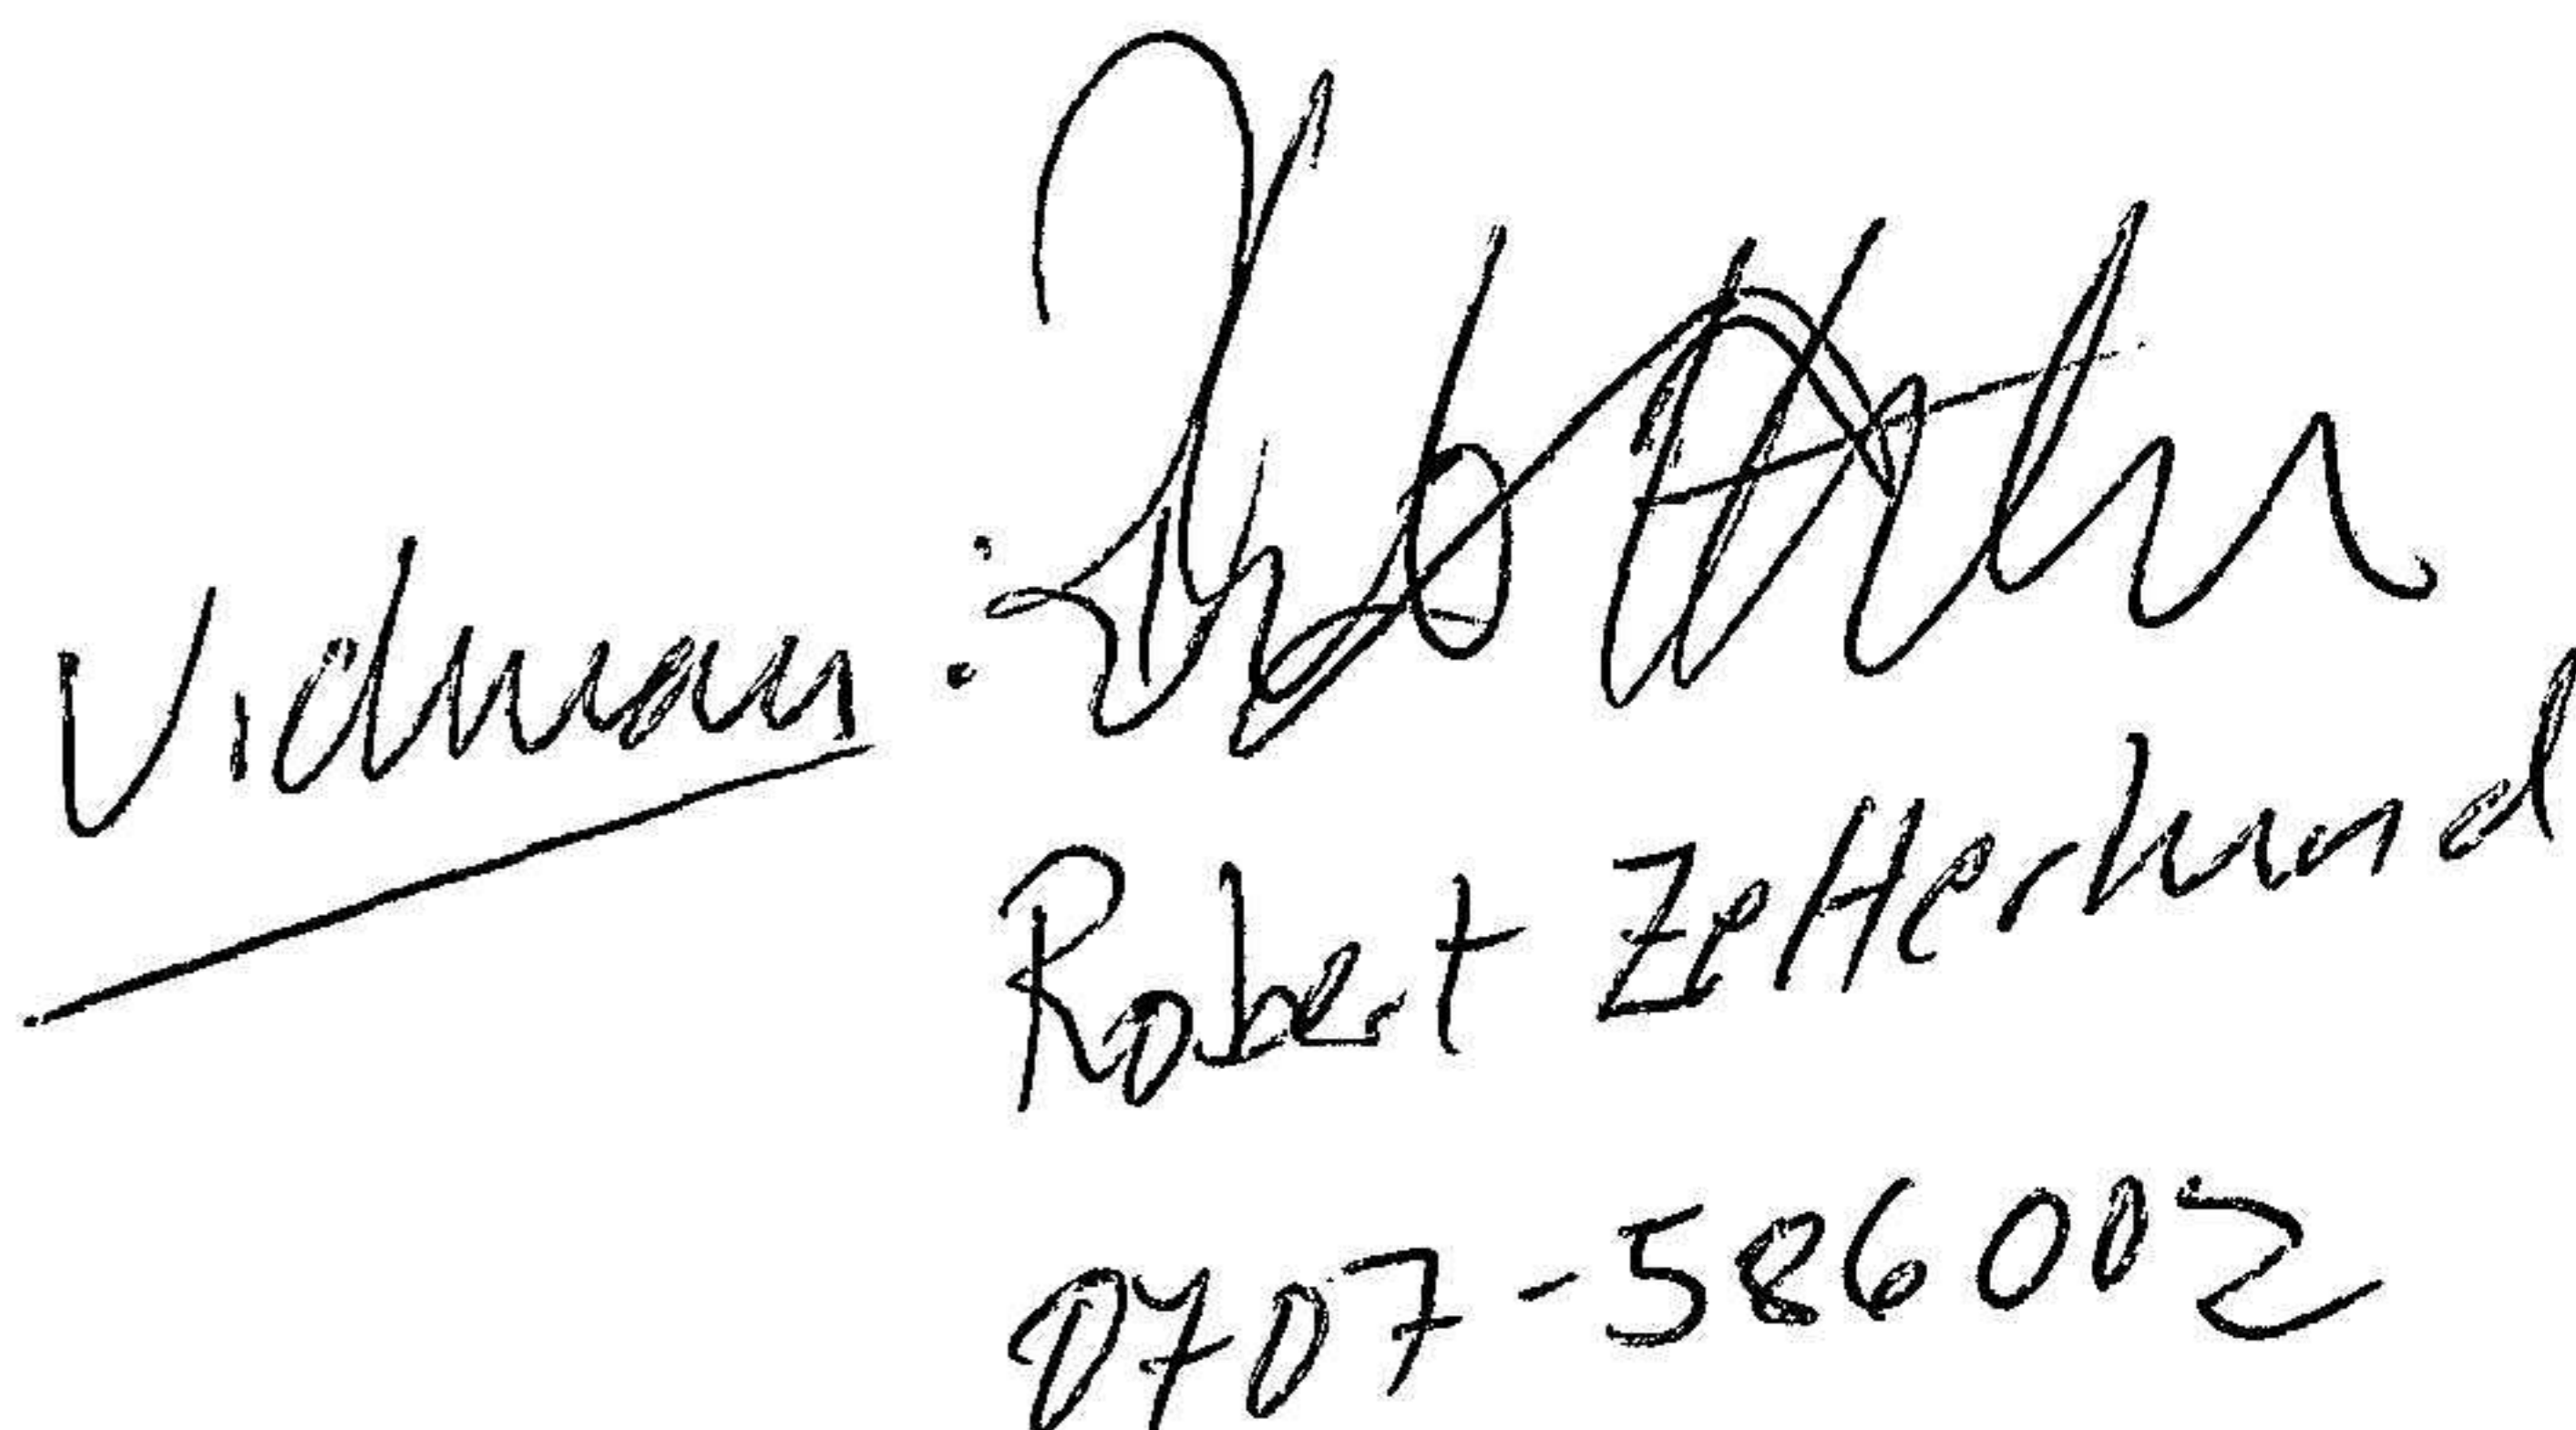 Vidman:
Robert Zetterlund
0707-586002